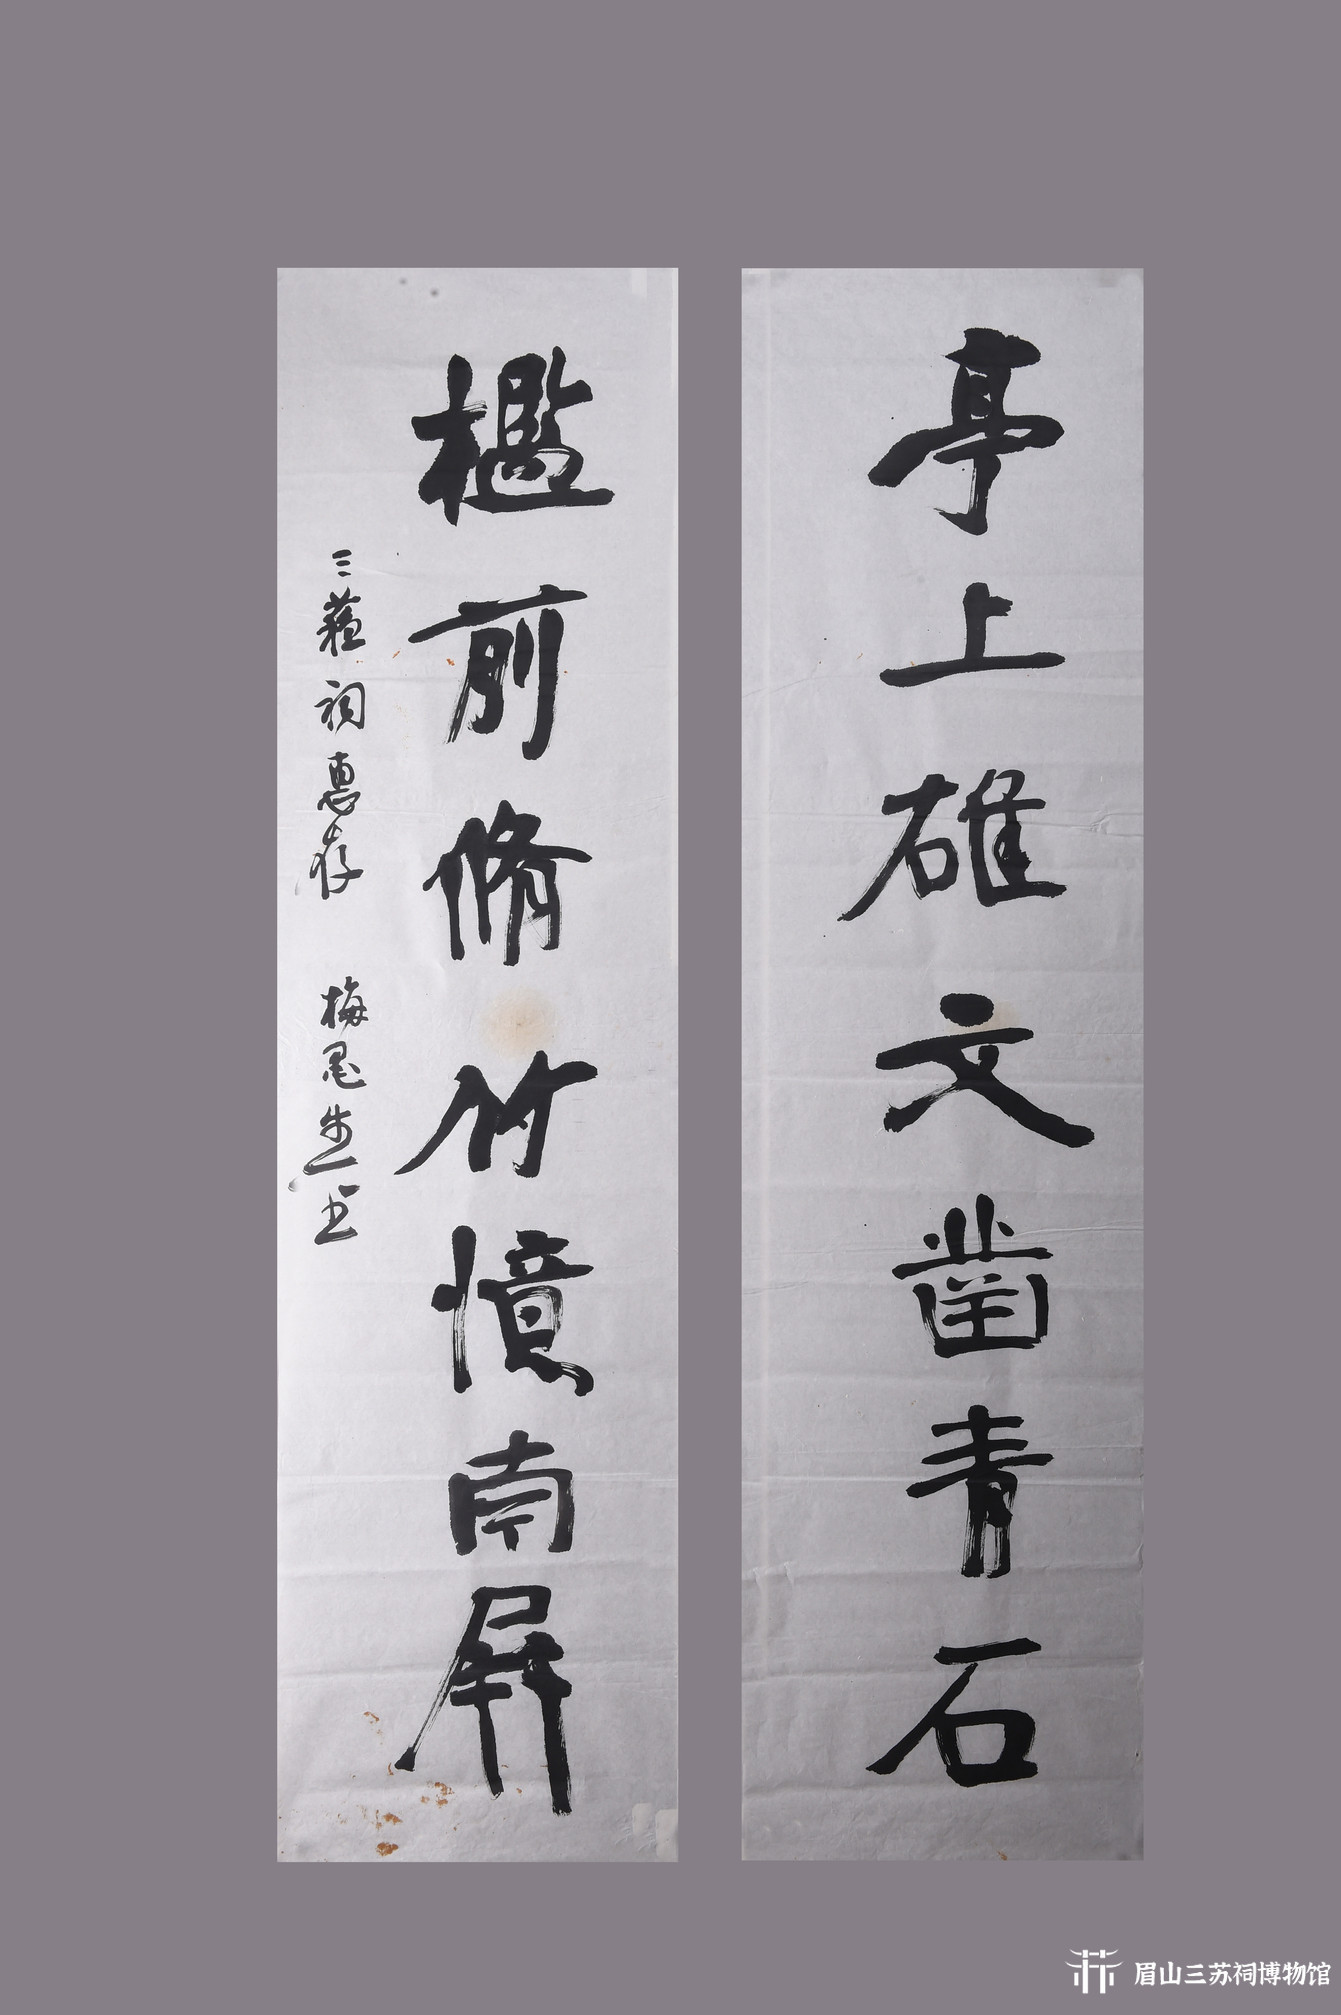 亭上雄文凿青石
槛前脩竹憶南屏
三蘓祠惠存 梅墨生书
眉山三苏祠博物馆